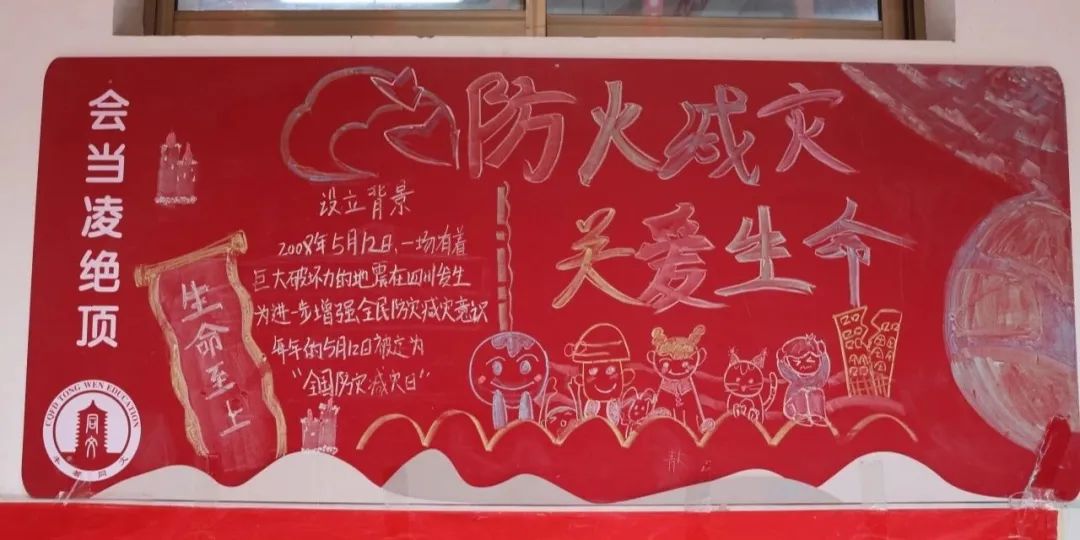 会当凌绝顶
防火减灾
关爱生命
设立背景
2008年5月12日，一场有着
巨大破坏力的地震在四川发生
为进一步增强全民防灾减灾意识
每年的5月12日被定为
“全国防灾减灾日”
生命至上
CQFD TONG WEN EDUCATION
同文
丰都同文